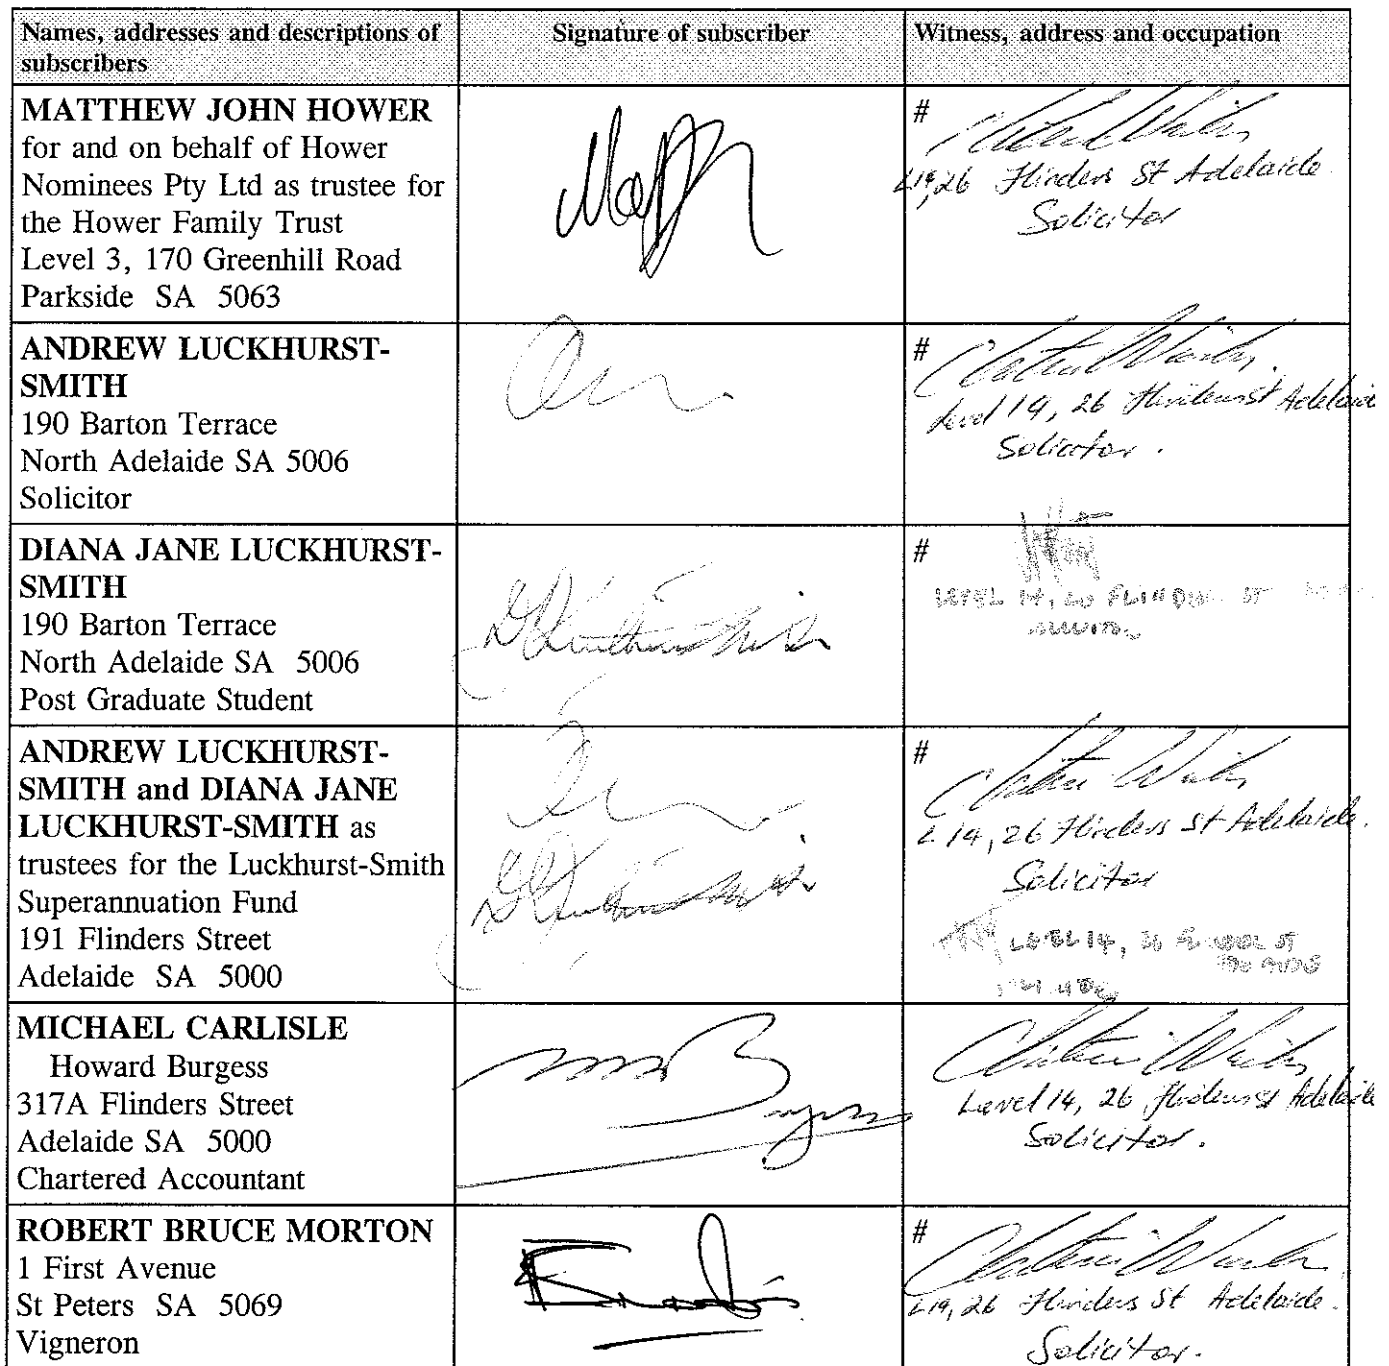 Names, addresses and descriptions of
subscribers
Signature of subscriber
Witness, address and occupation
MATTHEW JOHN HOWER
for and on behalf of Hower
Nominees Pty Ltd as trustee for
the Hower Family Trust
Level 3, 170 Greenhill Road
Parkside SA 5063
#
26 Flinders St Adelaide.
Solicitor
ANDREW LUCKHURST-
SMITH
190 Barton Terrace
North Adelaide SA 5006
Solicitor
#
Level 14, 26 Flinders St Adelaide
Solicitor.
DIANA JANE LUCKHURST-
SMITH
190 Barton Terrace
North Adelaide SA 5006
Post Graduate Student
#
LEVEL 14, ST
ANDREW LUCKHURST-
SMITH and DIANA JANE
LUCKHURST-SMITH as
trustees for the Luckhurst-Smith
Superannuation Fund
191 Flinders Street
Adelaide SA 5000
#
L 14, 26 Flinders St Adelaide.
Solicitor
LEVEL 14, ST
MICHAEL CARLISLE
Howard Burgess
317A Flinders Street
Adelaide SA 5000
Chartered Accountant
Level 14, 26 Flinders St Adelaide
Solicitor.
ROBERT BRUCE MORTON
1 First Avenue
St Peters SA 5069
Vigneron
#
L14, 26 Flinders St Adelaide.
Solicitor.